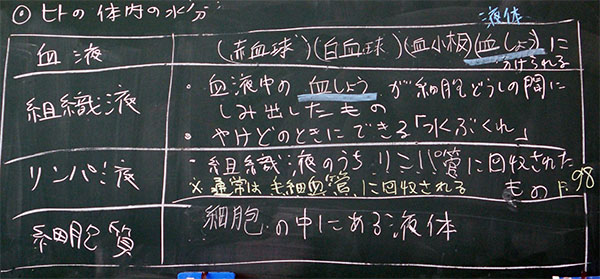 ◎ ヒトの体内の水分
液体
血液
(赤血球)(白血球)(血小板)(血しょう)に
分けられる
組織液
・血液中の 血しょう が細胞どうしの間に
しみ出したもの
・やけどのときにできる「水ぶくれ」
リンパ液
・組織液のうちリンパ管に回収された
もの P.98
※通常は毛細血管に回収される
細胞質
細胞の中にある液体